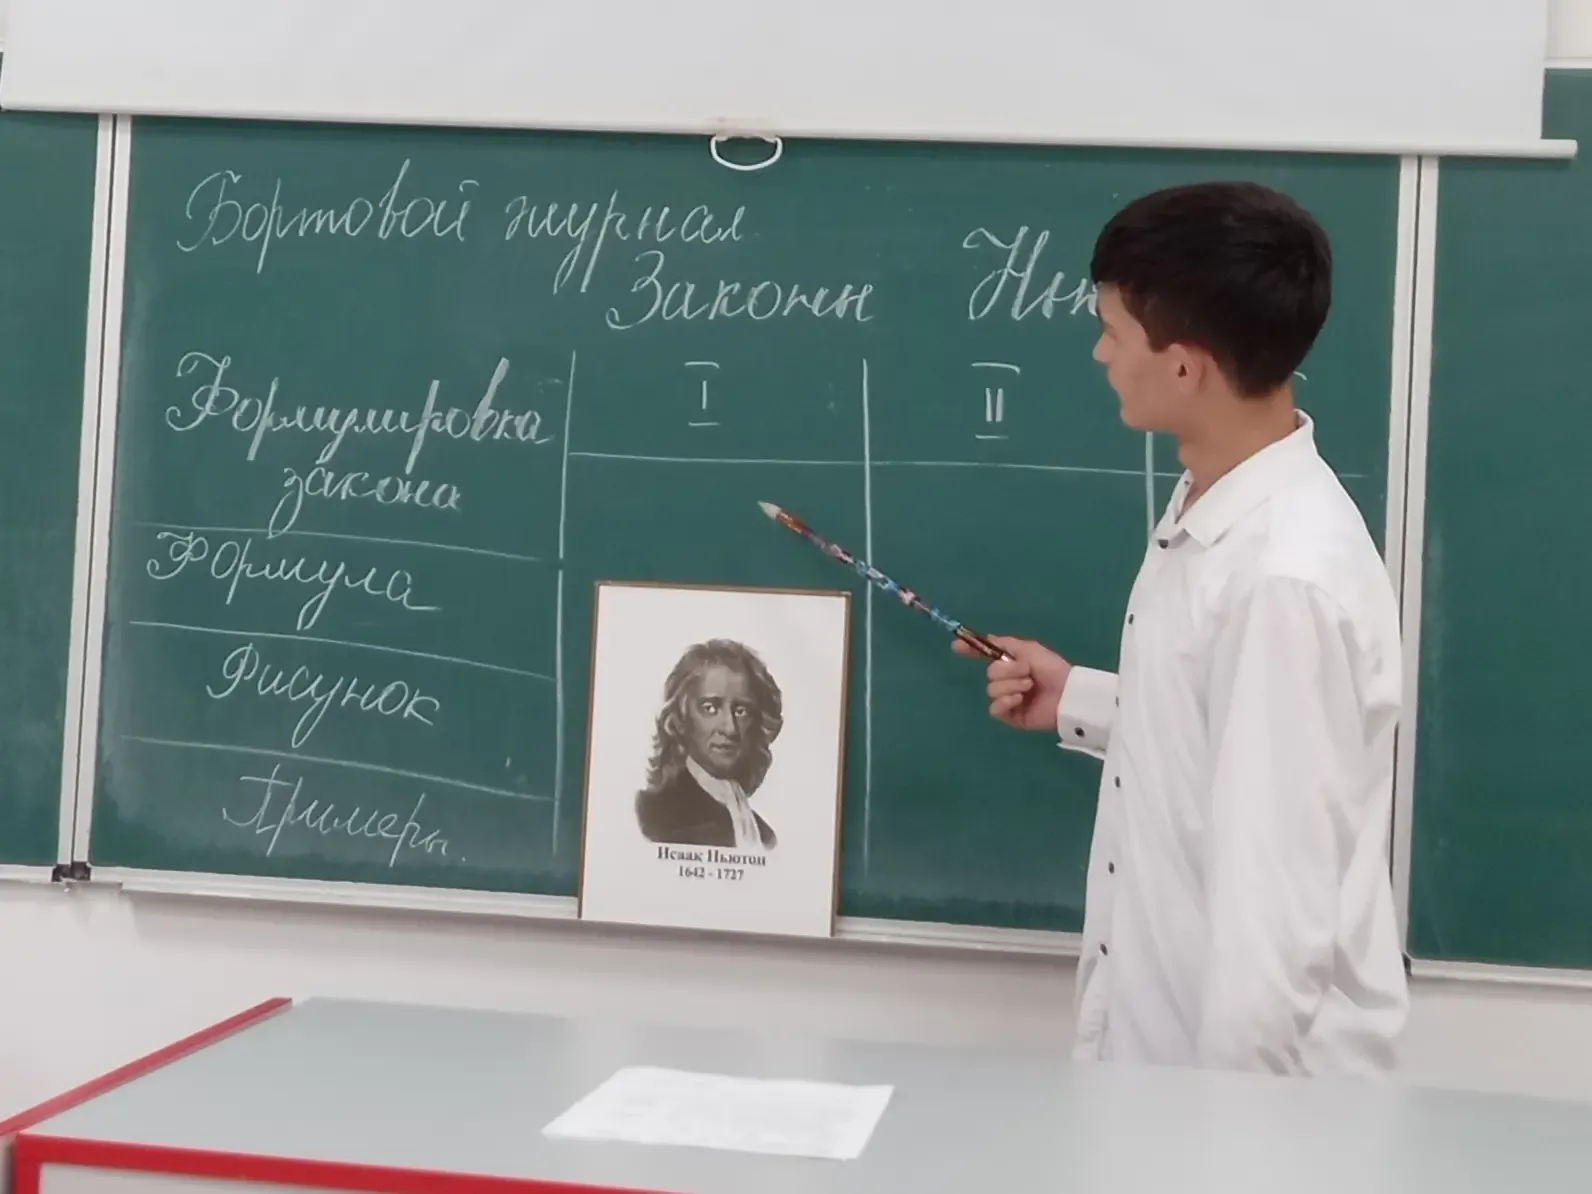 Бортовой журнал
Законы Нью
I II
Формулировка
закона
Формула
Рисунок
Примеры.
Исаак Ньютон
1642 - 1727